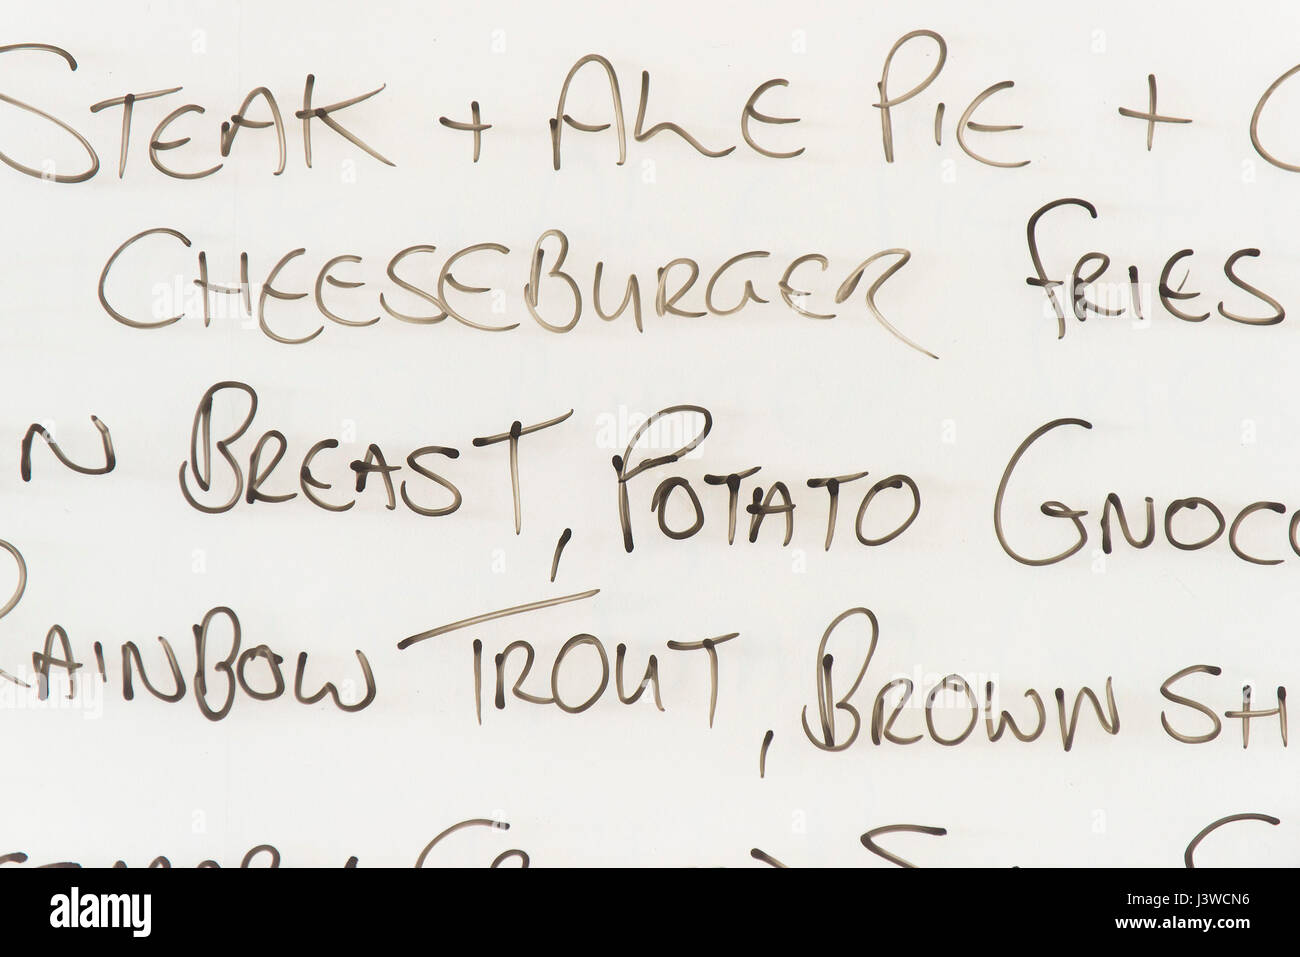 STEAK + ALE PIE + C
CHEESEBURGER FRIES
N BREAST, POTATO GNOCC
RAINBOW TROUT, BROWN SH
alamy stock photo
J3WCN6
www.alamy.com